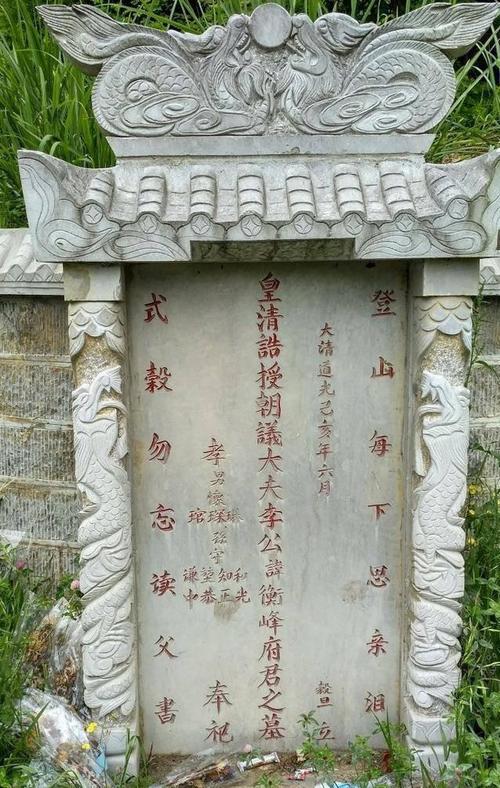 登山每下思亲泪
大清道光己亥年六月 穀旦立
皇清誥授朝議大夫李公諱衡峰府君之墓
孝男懷
琛
琯
孫宇
和光
知正
堃恭
謙中
奉祀
式穀勿忘读父書